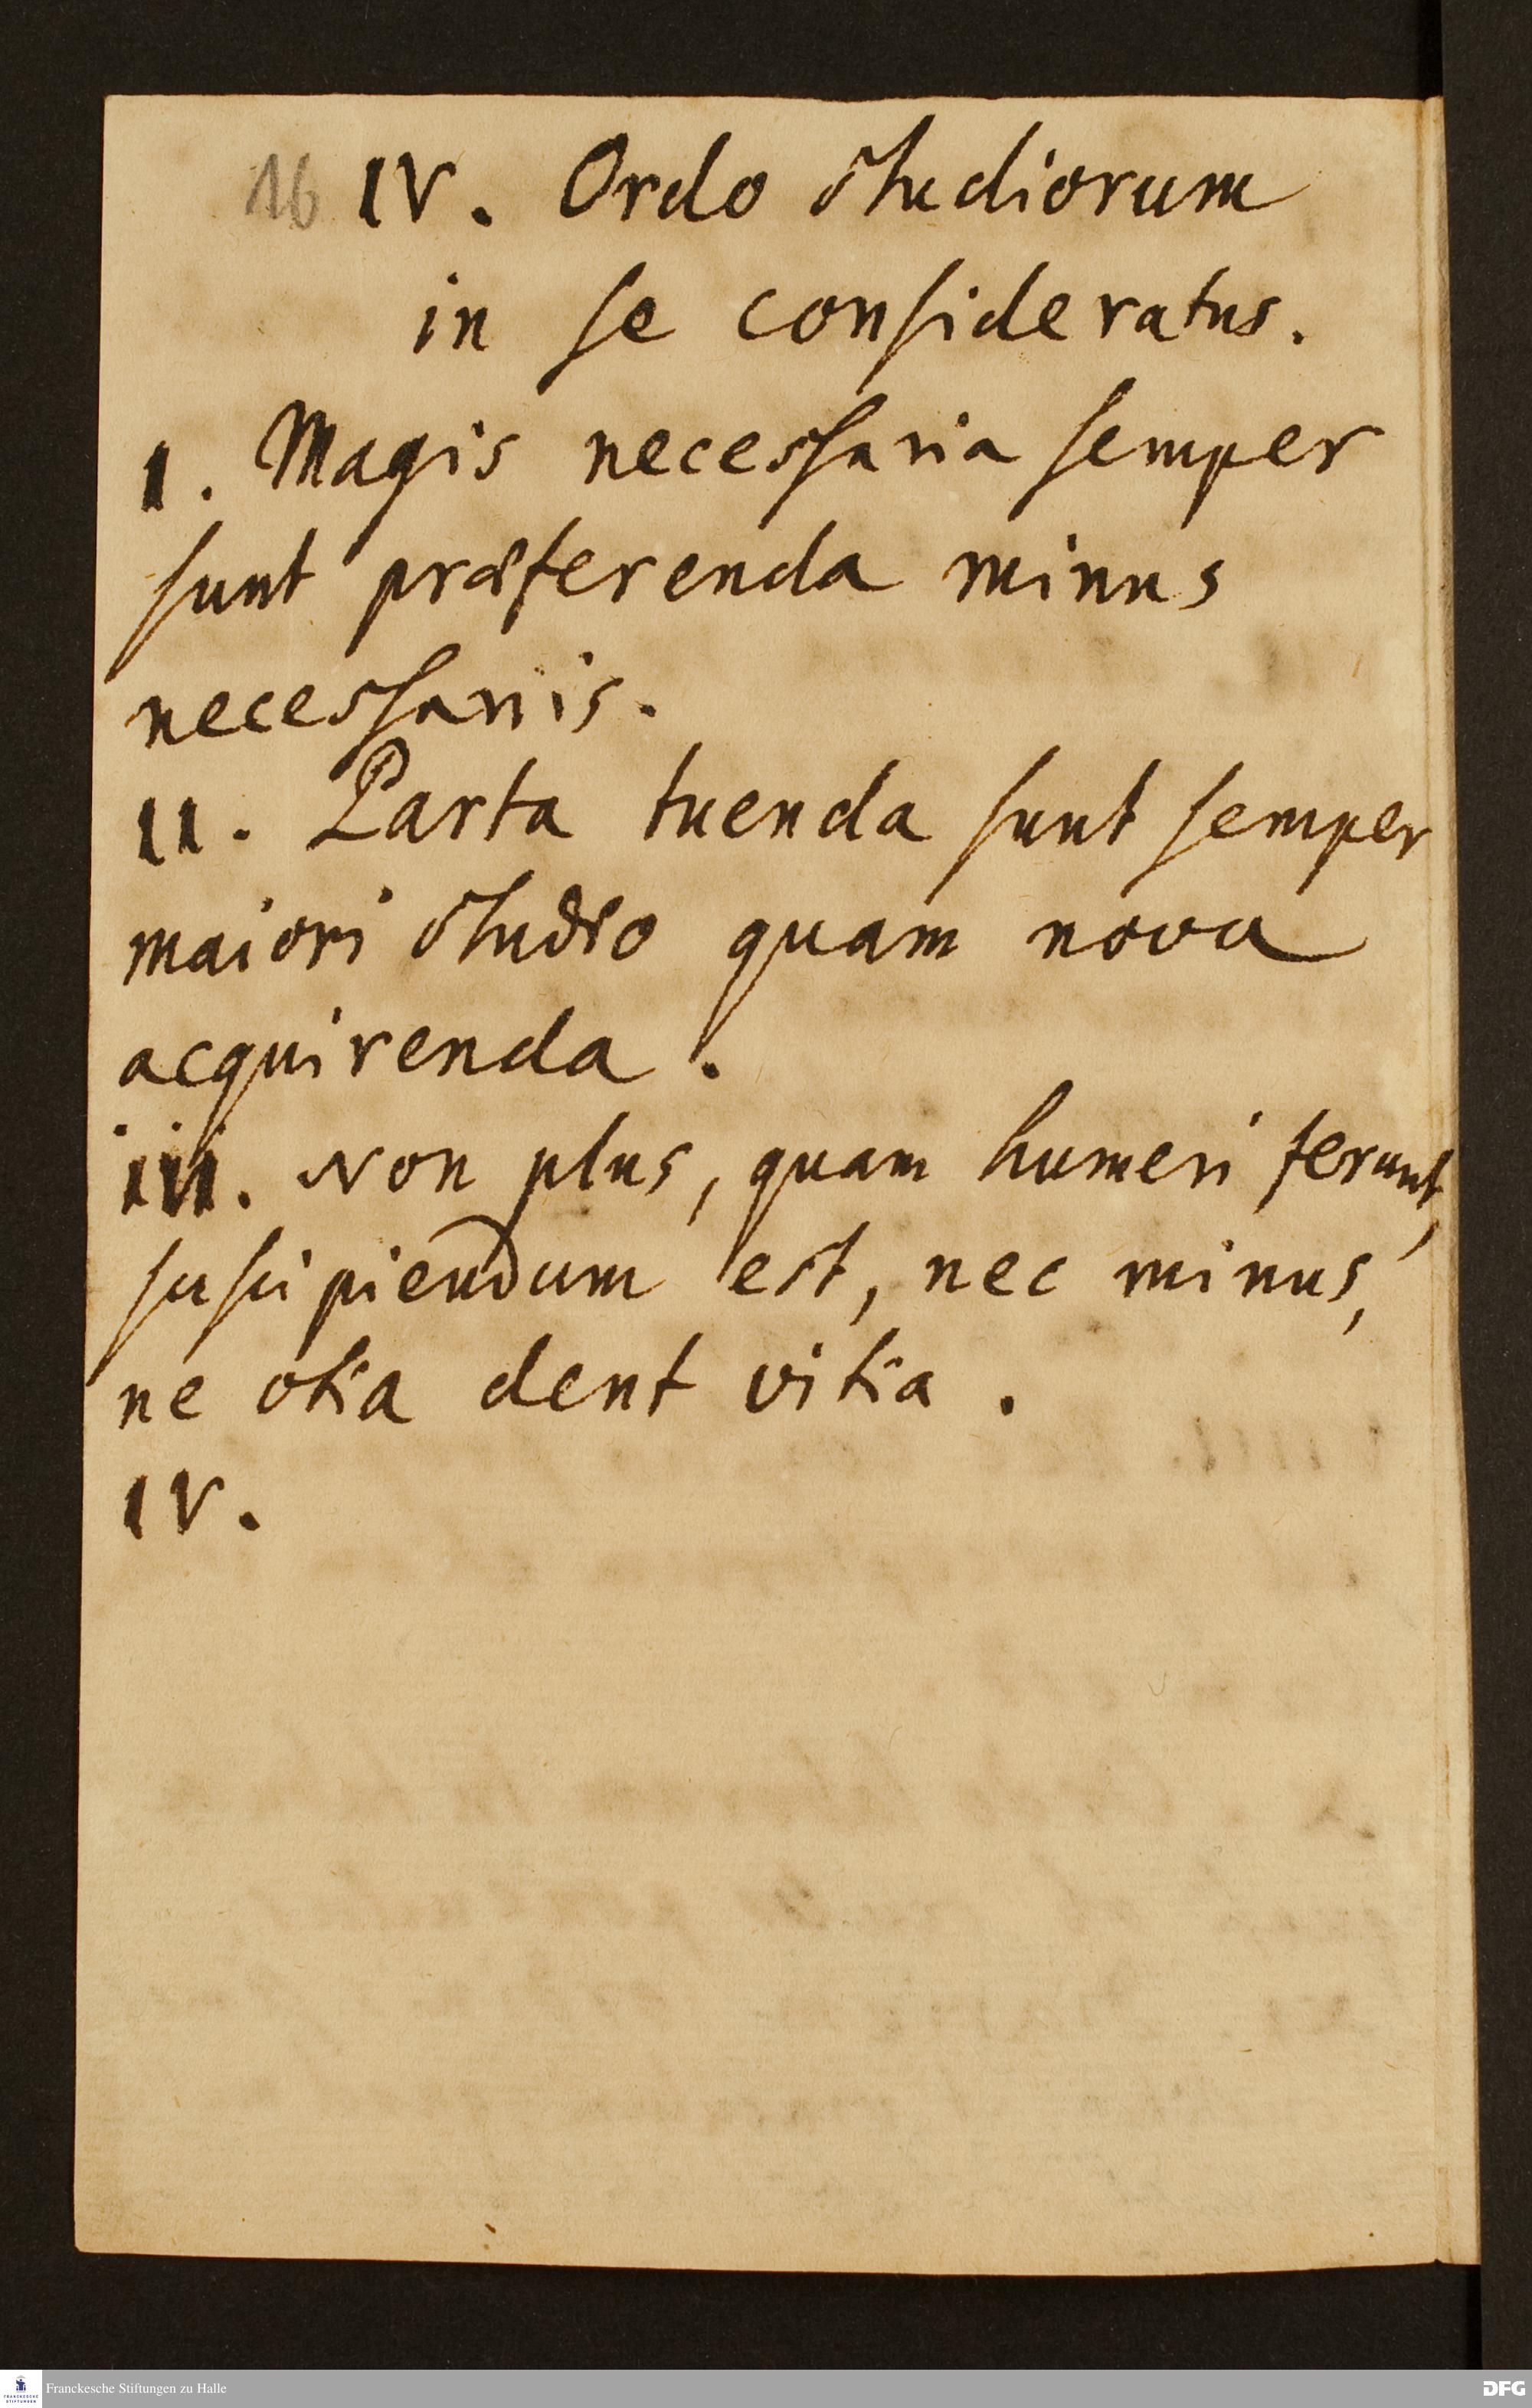 16 IV. Ordo studiorum
in se consideratus.
I. Magis necessaria semper
sunt præferenda minus
necessariis.
II. Parta tuenda sunt semper
maiori studio quam nova
acquirenda.
iii. Non plus, quam humeri ferunt,
suscipiendum est, nec minus,
ne otia dent vitia.
IV.
FRANCKESCHE STIFTUNGEN
Franckesche Stiftungen zu Halle
DFG